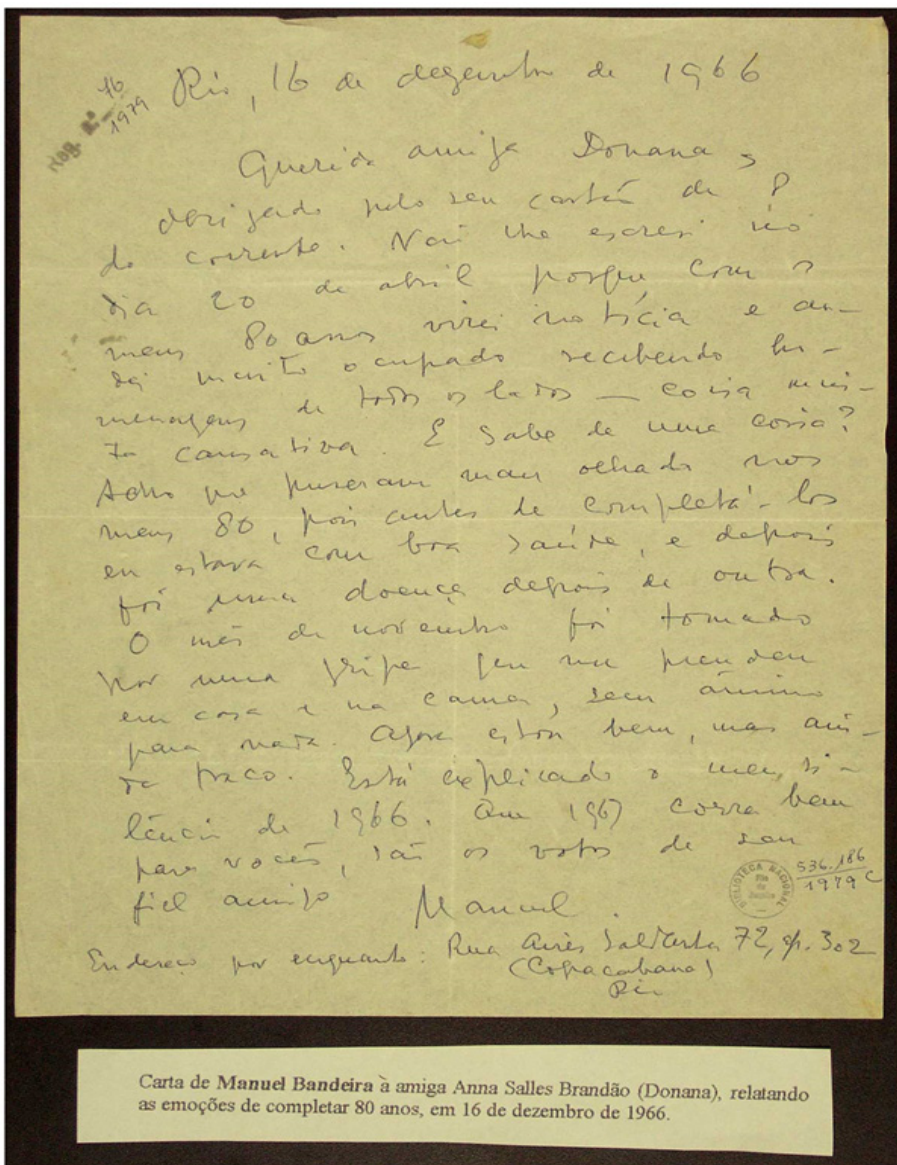 Reg. nº 76
1979
Rio, 16 de dezembro de 1966
Querida amiga Donana,
Obrigado pelo seu cartão de 8
do corrente. Não lhe escrevi no
dia 20 de abril porque com os
meus 80 anos virei notícia e an-
dei muito ocupado recebendo ho-
menagens de todos os lados — coisa mui-
to cansativa. E sabe de uma coisa?
Acho que puseram mau olhado nos
meus 80, pois antes de completá-los
eu estava com boa saúde, e depois
foi uma doença depois de outra.
O mês de novembro foi tomado
por uma gripe que me prendeu
em casa e na cama, sem ânimo
para nada. Agora estou bem, mas ain-
da fraco. Está explicado o meu si-
lêncio de 1966. Que 1967 corra bem
para vocês, são os votos de seu
fiel amigo Manuel.
BIBLIOTECA NACIONAL
Rio de Janeiro
536.186
1979 C
Endereço por enquanto: Rua Aires Saldanha 72, ap. 302
(Copacabana)
Rio
Carta de Manuel Bandeira à amiga Anna Salles Brandão (Donana), relatando
as emoções de completar 80 anos, em 16 de dezembro de 1966.